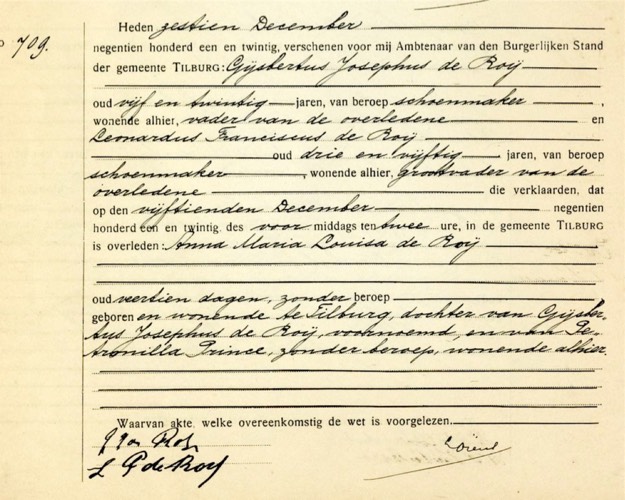 Nº 709.
Heden zestien December
negentien honderd een en twintig, verschenen voor mij Ambtenaar van den Burgerlijken Stand
der gemeente TILBURG: Gijsbertus Josephus de Roij
oud vijf en twintig jaren, van beroep schoenmaker,
wonende alhier, vader van de overledene en
Leonardus Franciscus de Roij
oud drie en vijftig jaren, van beroep
schoenmaker, wonende alhier, grootvader van de
overledene die verklaarden, dat
op den vijftienden December negentien
honderd een en twintig des voormiddags ten twee ure, in de gemeente TILBURG
is overleden: Anna Maria Louisa de Roij
oud veertien dagen, zonder beroep
geboren en wonende te Tilburg, dochter van Gijsber-
tus Josephus de Roij, voornoemd, en van Pe-
tronilla Prince, zonder beroep, wonende alhier.
Waarvan akte, welke overeenkomstig de wet is voorgelezen.
de Roij
L F de Roij